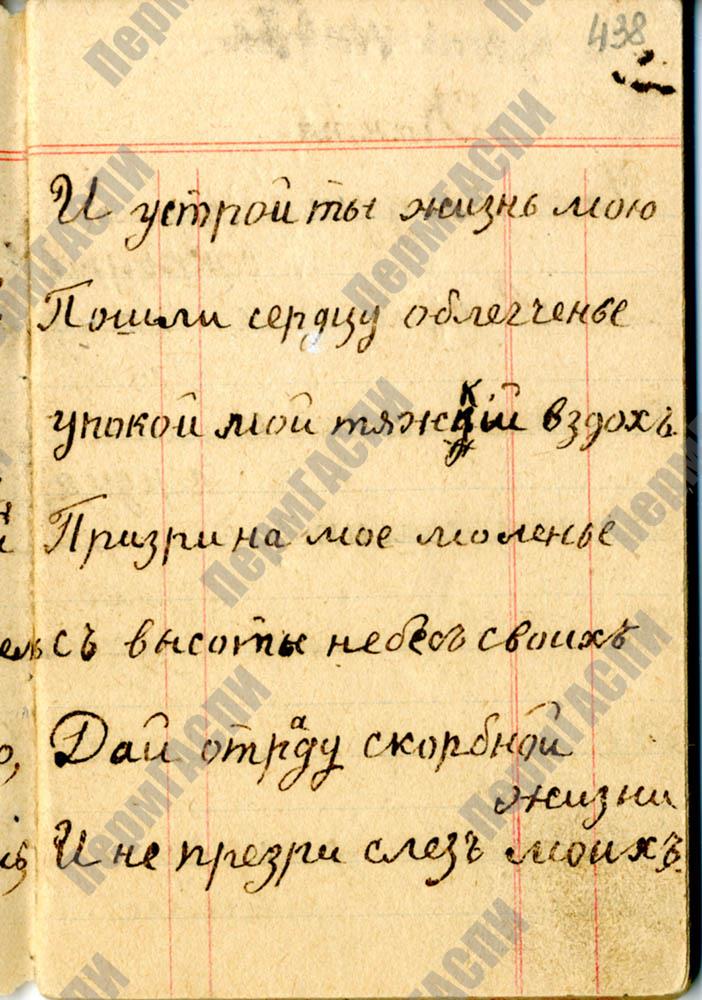 438
И устрой ты жизнь мою
Пошли сердцу облегченье
упокой мой тяжкій вздохъ
Призри на мое моленье
съ высоты небесъ своихъ
Дай отраду скорбной
жизни
И не презри слезъ моихъ
ПермГАСПИ